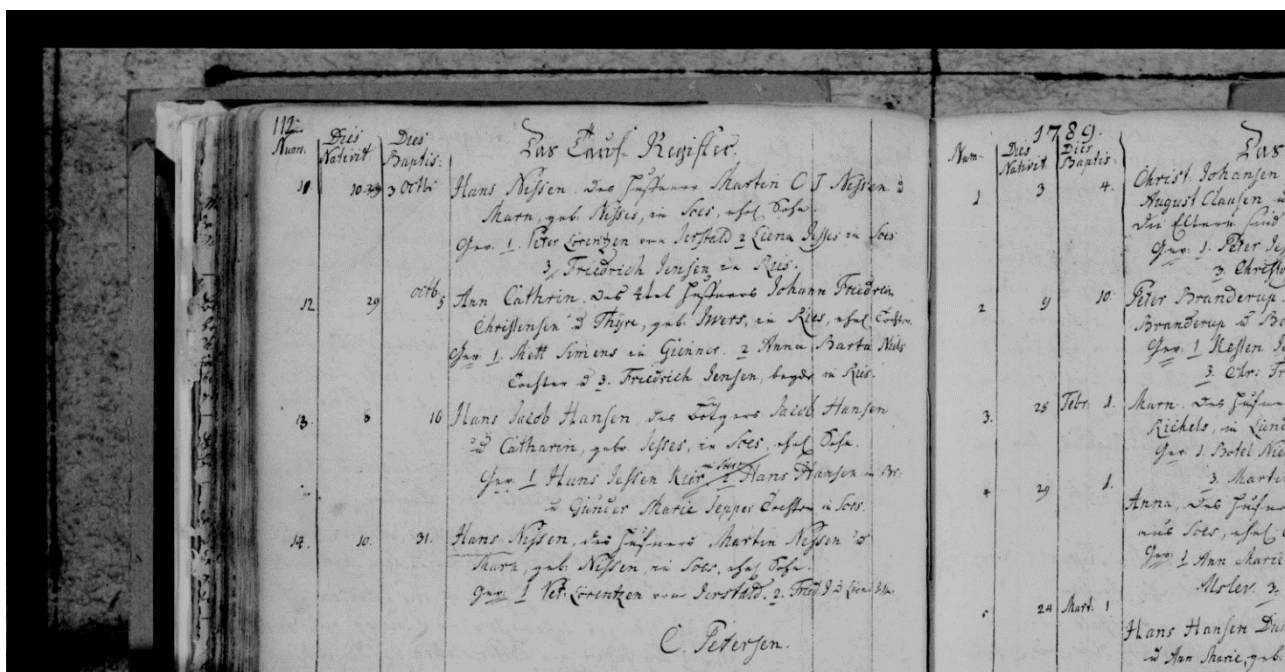 112.
Num. Dies Nativit. Dies Baptis: Das Tauf-Register.
11 10 29 3 Octb: Hans Nissen. des Hufners Martin C J Nissen u
Marn, geb. Nisses, in Soes, ehel. Sohn.
Gev. 1. Peter Lorentzen von Jerstald 2 Liena Jesses in Soes
3. Friedrich Jensen in Ries.
12 29 octb. 5 Ann Cathrin. des Hufners Johann Friedrich
Christensen u Thyre, geb. Iwers, in Ries, ehel. Tochter.
Gev. 1. Mett Simens in Gienner. 2 Anna Barta Niels
Tochter u 3. Friedrich Jensen, beyde in Ries.
13. 8 10 Hans Jacob Hansen, des Jacob Hansen
u Catharin, gebr. Jesses, in Soes, ehel. Sohn.
Gev. 1 Hans Jessen Kier in Soes 2 Hans Hansen in
u Günder Marie Jeppes Tochter in Soes.
14. 10. 31. Hans Nissen, des Hufners Martin Nissen u
Marn, geb. Nissen, in Soes, ehel. Sohn.
Gev. 1 Pet. Lorentzen von Jerstald. 2. Fried. J. 3 Liena
C. Petersen.
1789.
Num. Dies Nativit. Dies Baptis: Das
1 3 4. Christ. Johansen
August Clausen u
die Eltern sind
Gev. 1. Peter
3. Christ
2 9 10. Peter Branderup
Branderup u
Gev. 1
3. Chr:
3. 25 Febr. 1. Marn. des Hufners
Richels, in
Gev. 1. Botel
3. Martin
4 29 1. Anna, des Hufners
aus Soes, ehel.
Gev. 1 Ann Marie
3.
5 24 Mart. 1 Hans Hansen
u Ann Marie, geb.